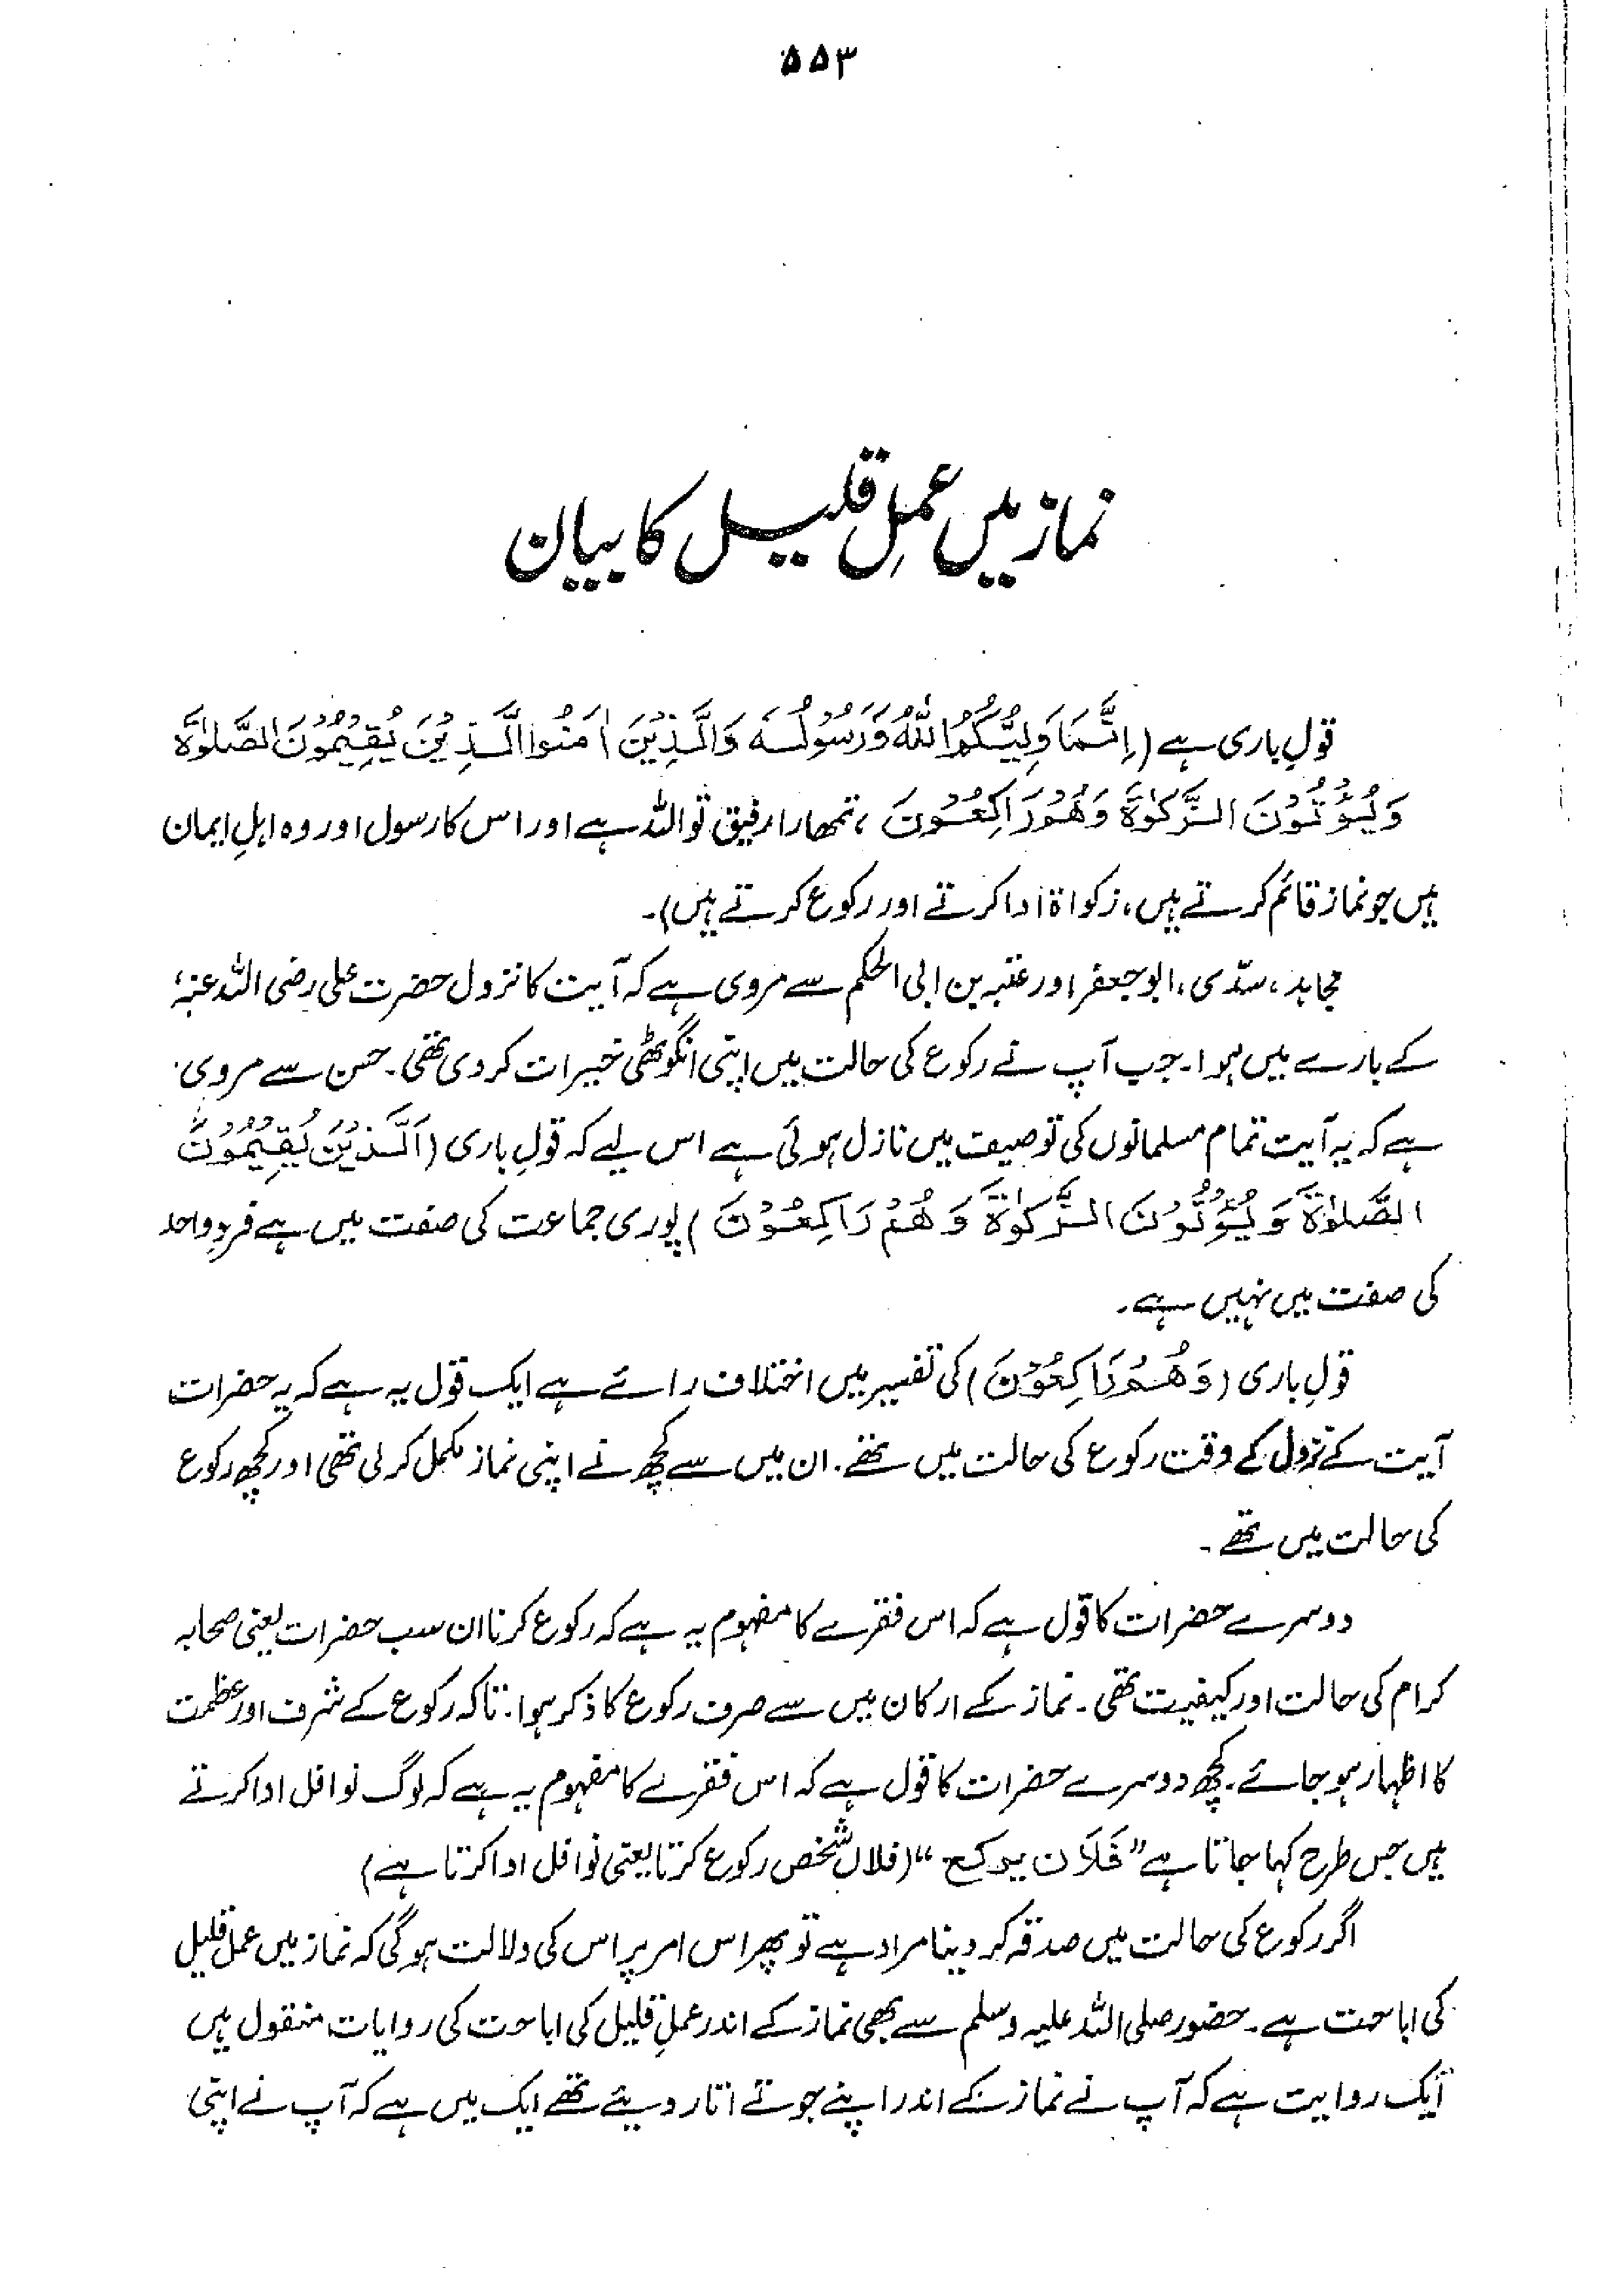 ۵۵۳
نماز میں عملِ قلیل کا بیان
قولِ باری ہے (اِنَّمَا وَلِيُّكُمُ اللّٰهُ وَرَسُوْلُهٗ وَالَّذِيْنَ اٰمَنُوا الَّذِيْنَ يُقِيْمُوْنَ الصَّلٰوةَ
وَيُؤْتُوْنَ الزَّكٰوةَ وَهُمْ رَاكِعُوْنَ ، تمھارا رفیق تو اللہ ہے اور اس کا رسول اور وہ اہلِ ایمان
ہیں جو نماز قائم کرتے ہیں، زکواۃ ادا کرتے اور رکوع کرتے ہیں)۔
مجاہد، سدّی، ابو جعفر اور عتبہ بن ابی الحکم سے مروی ہے کہ آیت کا نزول حضرت علی رضی اللہ عنہ،
کے بارے میں ہوا۔ جب آپ نے رکوع کی حالت میں اپنی انگوٹھی خیرات کر دی تھی۔ حسن سے مروی
ہے کہ یہ آیت تمام مسلمانوں کی توصیف میں نازل ہوئی ہے اس لیے کہ قولِ باری (اَلَّذِيْنَ يُقِيْمُوْنَ
الصَّلٰوةَ وَيُؤْتُوْنَ الزَّكٰوةَ وَهُمْ رَاكِعُوْنَ) پوری جماعت کی صفت میں ہے فردِ واحد
کی صفت میں نہیں ہے۔
قولِ باری (وَهُمْ رَاكِعُوْنَ) کی تفسیر میں اختلاف رائے ہے ایک قول یہ ہے کہ یہ حضرات
آیت کے نزول کے وقت رکوع کی حالت میں تھے۔ ان میں سے کچھ نے اپنی نماز مکمل کر لی تھی اور کچھ رکوع
کی حالت میں تھے۔
دوسرے حضرات کا قول ہے کہ اس فقرے کا مفہوم یہ ہے کہ رکوع کرنا ان سب حضرات یعنی صحابہ
کرام کی حالت اور کیفیت تھی۔ نماز کے ارکان میں سے صرف رکوع کا ذکر ہوا۔ تاکہ رکوع کے شرف اور عظمت
کا اظہار ہو جائے۔ کچھ دوسرے حضرات کا قول ہے کہ اس فقرے کا مفہوم یہ ہے کہ لوگ نوافل ادا کرتے
ہیں جس طرح کہا جاتا ہے "فَلَان یرکع" (فلاں شخص رکوع کرتا یعنی نوافل ادا کرتا ہے)
اگر رکوع کی حالت میں صدقہ کر دینا مراد ہے تو پھر اس امر پر اس کی دلالت ہوگی کہ نماز میں عمل قلیل
کی اباحت ہے۔ حضور صلی اللہ علیہ وسلم سے بھی نماز کے اندر عملِ قلیل کی اباحت کی روایات منقول ہیں
ایک روایت ہے کہ آپ نے نماز کے اندر اپنے جوتے اتار دیئے تھے ایک میں ہے کہ آپ نے اپنی